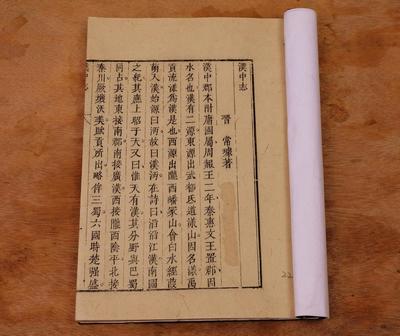 漢中志
晉 常璩著
漢中郡本附庸國屬周赧王二年秦惠文王置郡因
水名也漢有二源東源出武都氐道漾山因名漾禹
貢流漾爲漢是也西源出隴西嶓冢山會白水經葭
萌入漢始源曰沔故曰漢沔在詩曰滔滔江漢南國
之紀其應上昭于天又曰惟天有漢其分野與巴蜀
同占其地東接南郡南接廣漢西接隴西陰平北接
秦川厥壤沃美賦貢所出略侔三蜀六國時楚强盛
22